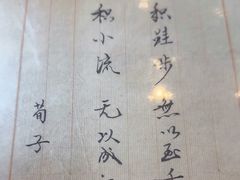 积跬步 無以至千
积小流 无以成
荀子